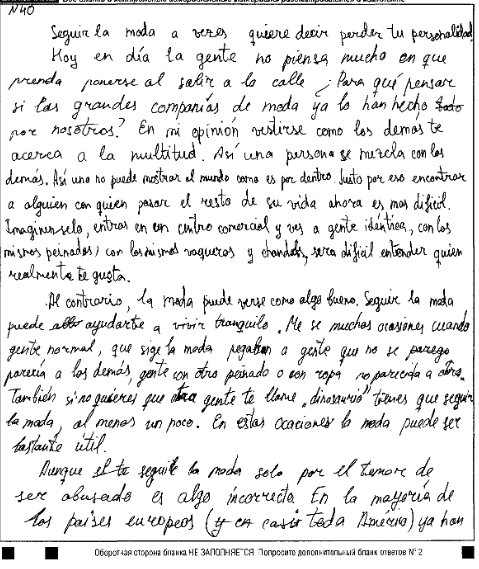 N40
Seguir la moda a veces quiere decir perder tu personalidad.
Hoy en día la gente no piensa mucho en que
prenda ponerse al salir a la calle ¿Para qué pensar
si las grandes companías de moda ya lo han hecho todo
por nosotros? En mi opinión vestirse como los demás te
acerca a la multitud. Así una persona se mezcla con los
demás. Así uno no puede mostrar al mundo como es por dentro. Justo por eso encontrar
a alguien con quien pasar el resto de su vida ahora es mas difícil.
Imaginenselo, entras en un centro comercial y ves a gente idéntica, con los
mismos peinados, con los mismos vaqueros y chandals, sera difícil entender quien
realmente te gusta.
Al contrario, la moda puede verse como algo bueno. Seguir la moda
puede ayudarte a vivir tranquilo. He se muchas ocasiones cuando
gente normal, que sige la moda pegaban a gente que no se
parecía a los demás, gente con otro peinado o con ropa no parecida a otra.
También si no quieres que otra gente te llame "dinosaurio" tienes que seguir
la moda, al menos un poco. En estas ocaciones la moda puede ser
bastante útil.
Aunque seguir la moda solo por el temor de
ser abusado es algo incorrecto. En la mayoría de
los países europeos (y en casi toda América) ya han
Оборотная сторона бланка НЕ ЗАПОЛНЯЕТСЯ. Попросите дополнительный бланк ответов № 2